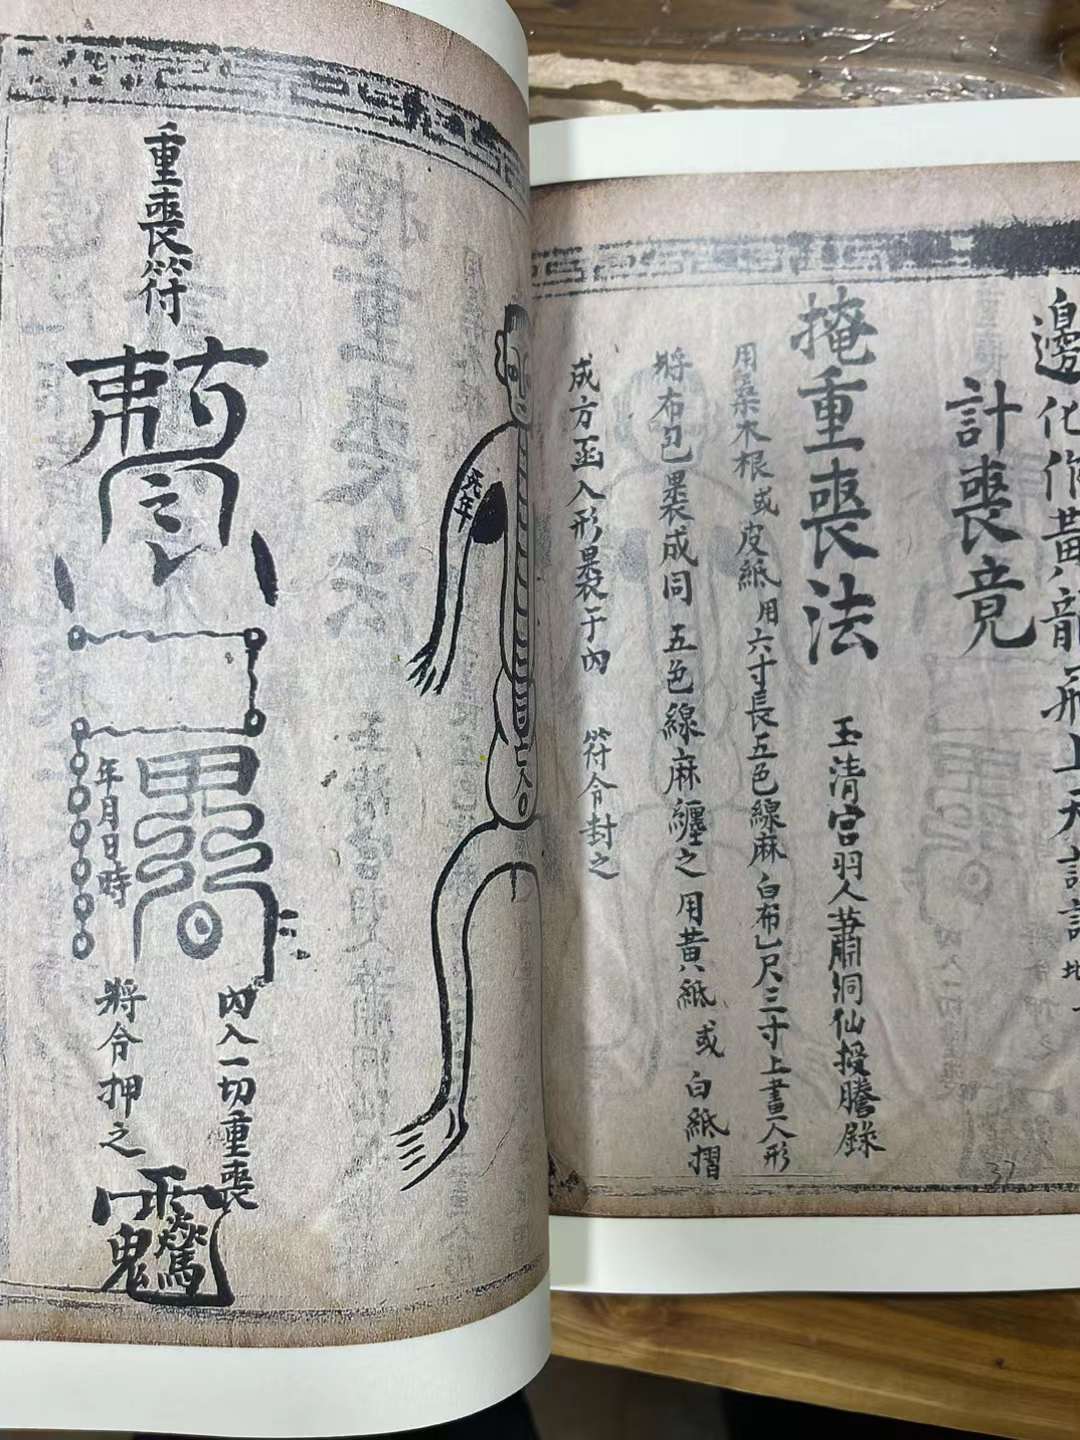 邊化作黃龍飛上天
計喪竟
掩重喪法
玉清宮羽人蕭洞仙授謄錄
用桑木根或皮紙用六寸長五色線麻白布乙尺三寸上畫人形
將布包裹成同五色線麻纏之用黃紙或白紙摺
成方函人形裹于內 符令封之
37
死年
亡人
重喪符
內入一切重喪
年月日時
將令押之